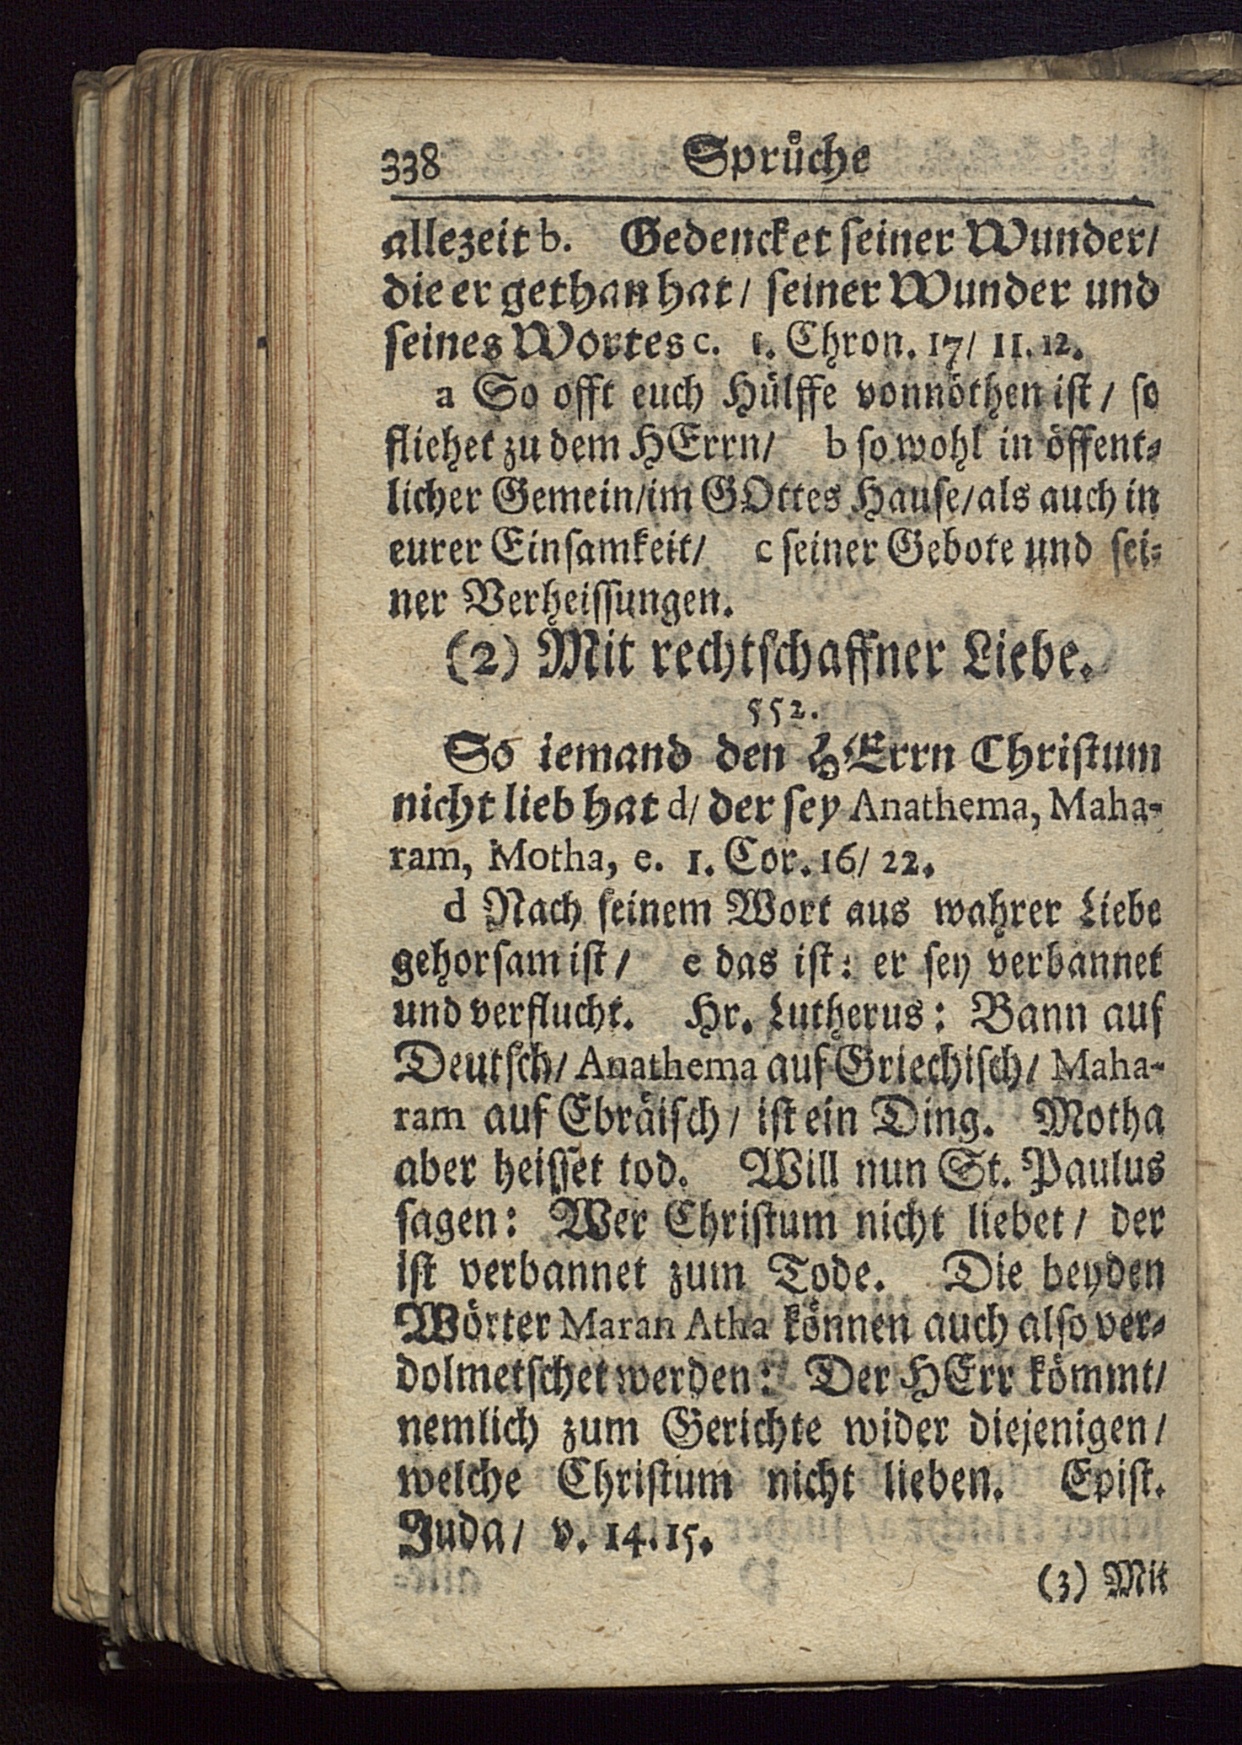 338 Sprüche
allezeit b. Gedencket seiner Wunder/
die er gethan hat/ seiner Wunder und
seines Wortes c. 1. Chron. 17/ 11. 12.
a So offt euch Hülffe vonnöthen ist/ so
fliehet zu dem HErrn/ b so wohl in öffent-
licher Gemein/im GOttes Hause/als auch in
eurer Einsamkeit/ c seiner Gebote und sei-
ner Verheissungen.
(2) Mit rechtschaffner Liebe.
552.
So iemand den HErrn Christum
nicht lieb hat d/ der sey Anathema, Maha-
ram, Motha, e. 1. Cor. 16/ 22.
d Nach seinem Wort aus wahrer Liebe
gehorsam ist/ e das ist: er sey verbannet
und verflucht. Hr. Lutherus: Bann auf
Deutsch/ Anathema auf Griechisch/ Maha-
ram auf Ebräisch/ ist ein Ding. Motha
aber heisset tod. Will nun St. Paulus
sagen: Wer Christum nicht liebet/ der
ist verbannet zum Tode. Die beyden
Wörter Maran Atha können auch also ver-
dolmetschet werden: Der HErr kömmt/
nemlich zum Gerichte wider diejenigen/
welche Christum nicht lieben. Epist.
Juda/ v. 14. 15.
(3) Mit